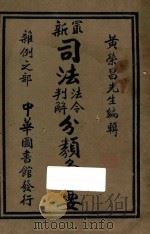 黃榮昌先生編輯
最新
司法
法令
判解
分類
要
雜例之部
中華圖書館發行